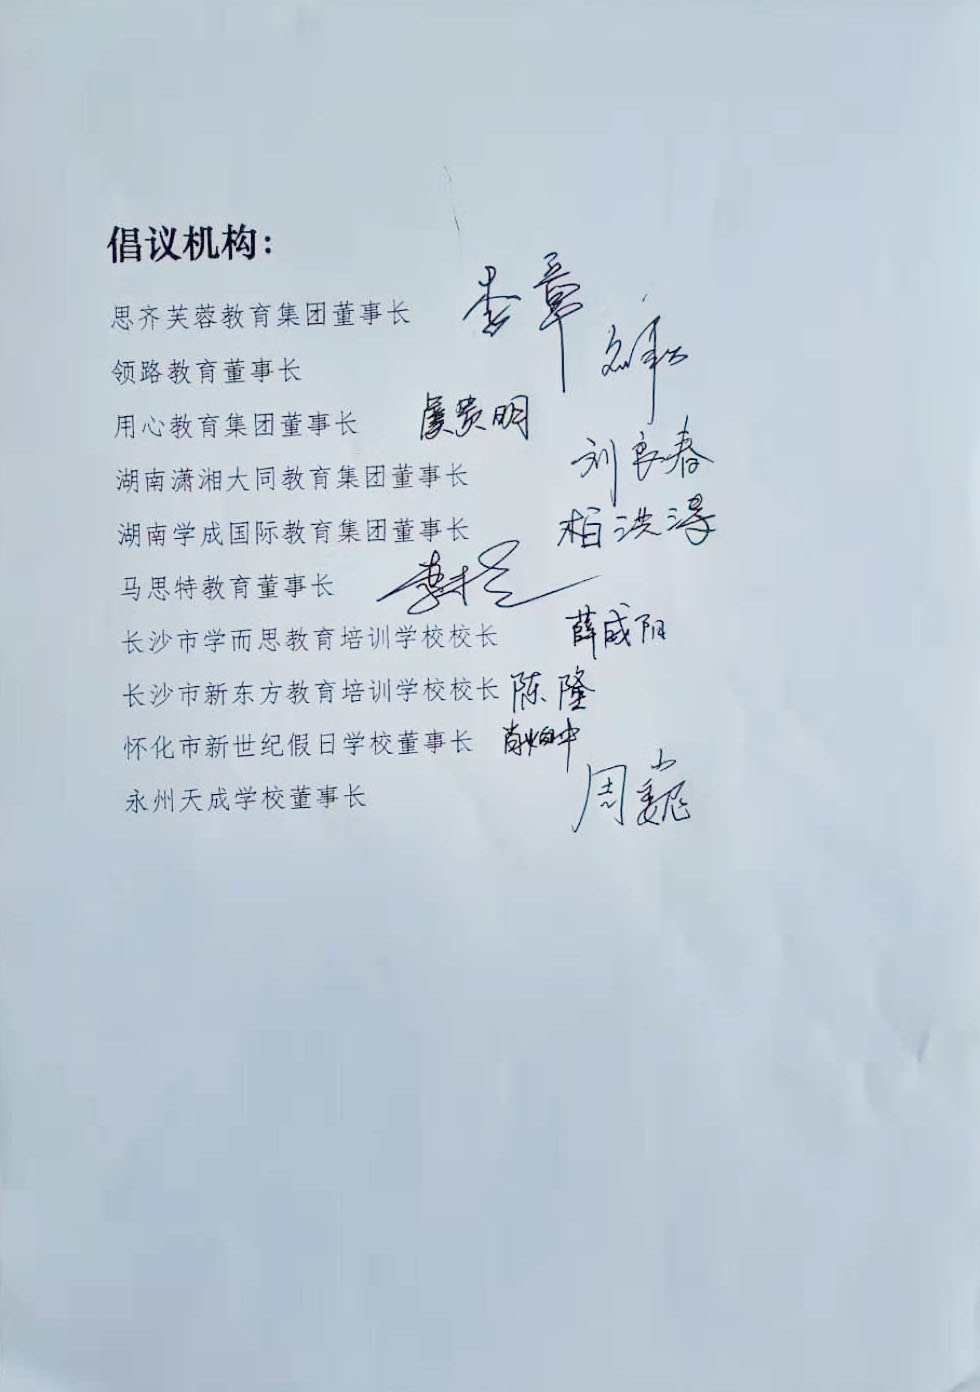 倡议机构：
思齐芙蓉教育集团董事长 李章
领路教育董事长
用心教育集团董事长 虞贵明
湖南潇湘大同教育集团董事长 刘良春
湖南学成国际教育集团董事长 柏洪淳
马思特教育董事长
长沙市学而思教育培训学校校长 薛成阳
长沙市新东方教育培训学校校长 陈隆
怀化市新世纪假日学校董事长
永州天成学校董事长 周